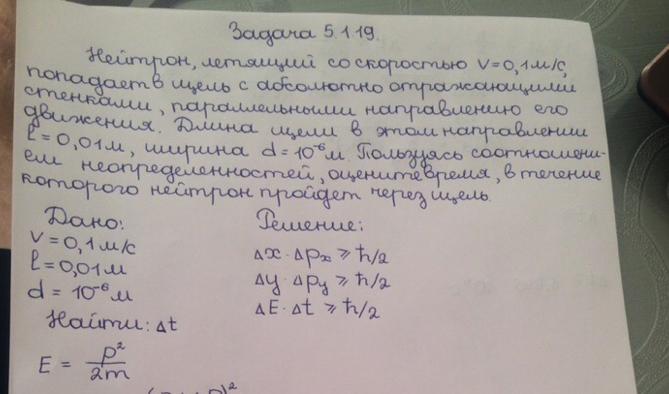 Задача 5.1.19.
Нейтрон, летящий со скоростью v=0,1м/с,
попадает в щель с абсолютно отражающими
стенками, параллельными направлению его
движения. Длина щели в этом направлении
ℓ=0,01м, ширина d=10⁻⁶м. Пользуясь соотношени-
ем неопределенностей, оцените время, в течение
которого нейтрон пройдет через щель.
Дано:
v=0,1м/с
ℓ=0,01м
d=10⁻⁶м
Найти: Δt
E = p²/2m
Решение:
Δx·Δpₓ ⩾ ħ/2
Δy·Δp_y ⩾ ħ/2
ΔE·Δt ⩾ ħ/2